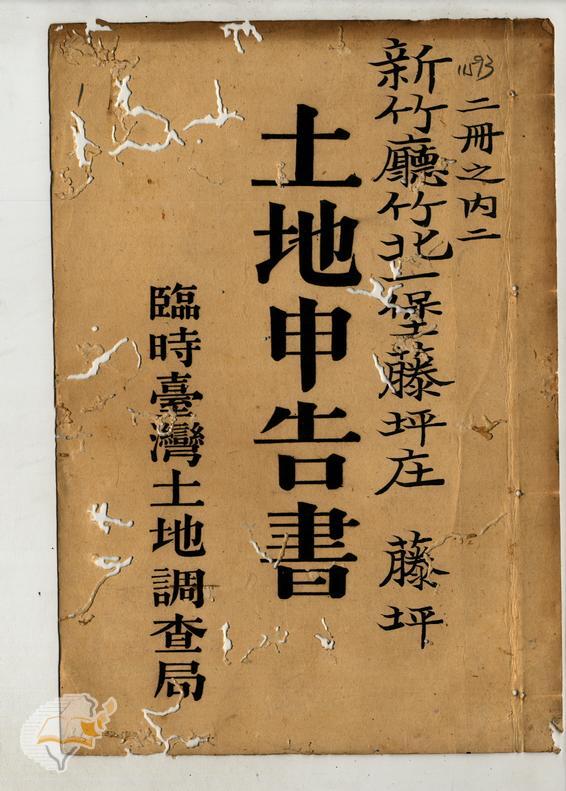 11593
二冊之内二
新竹廳竹北一堡藤坪庄 藤坪
土地申告書
臨時臺灣土地調查局